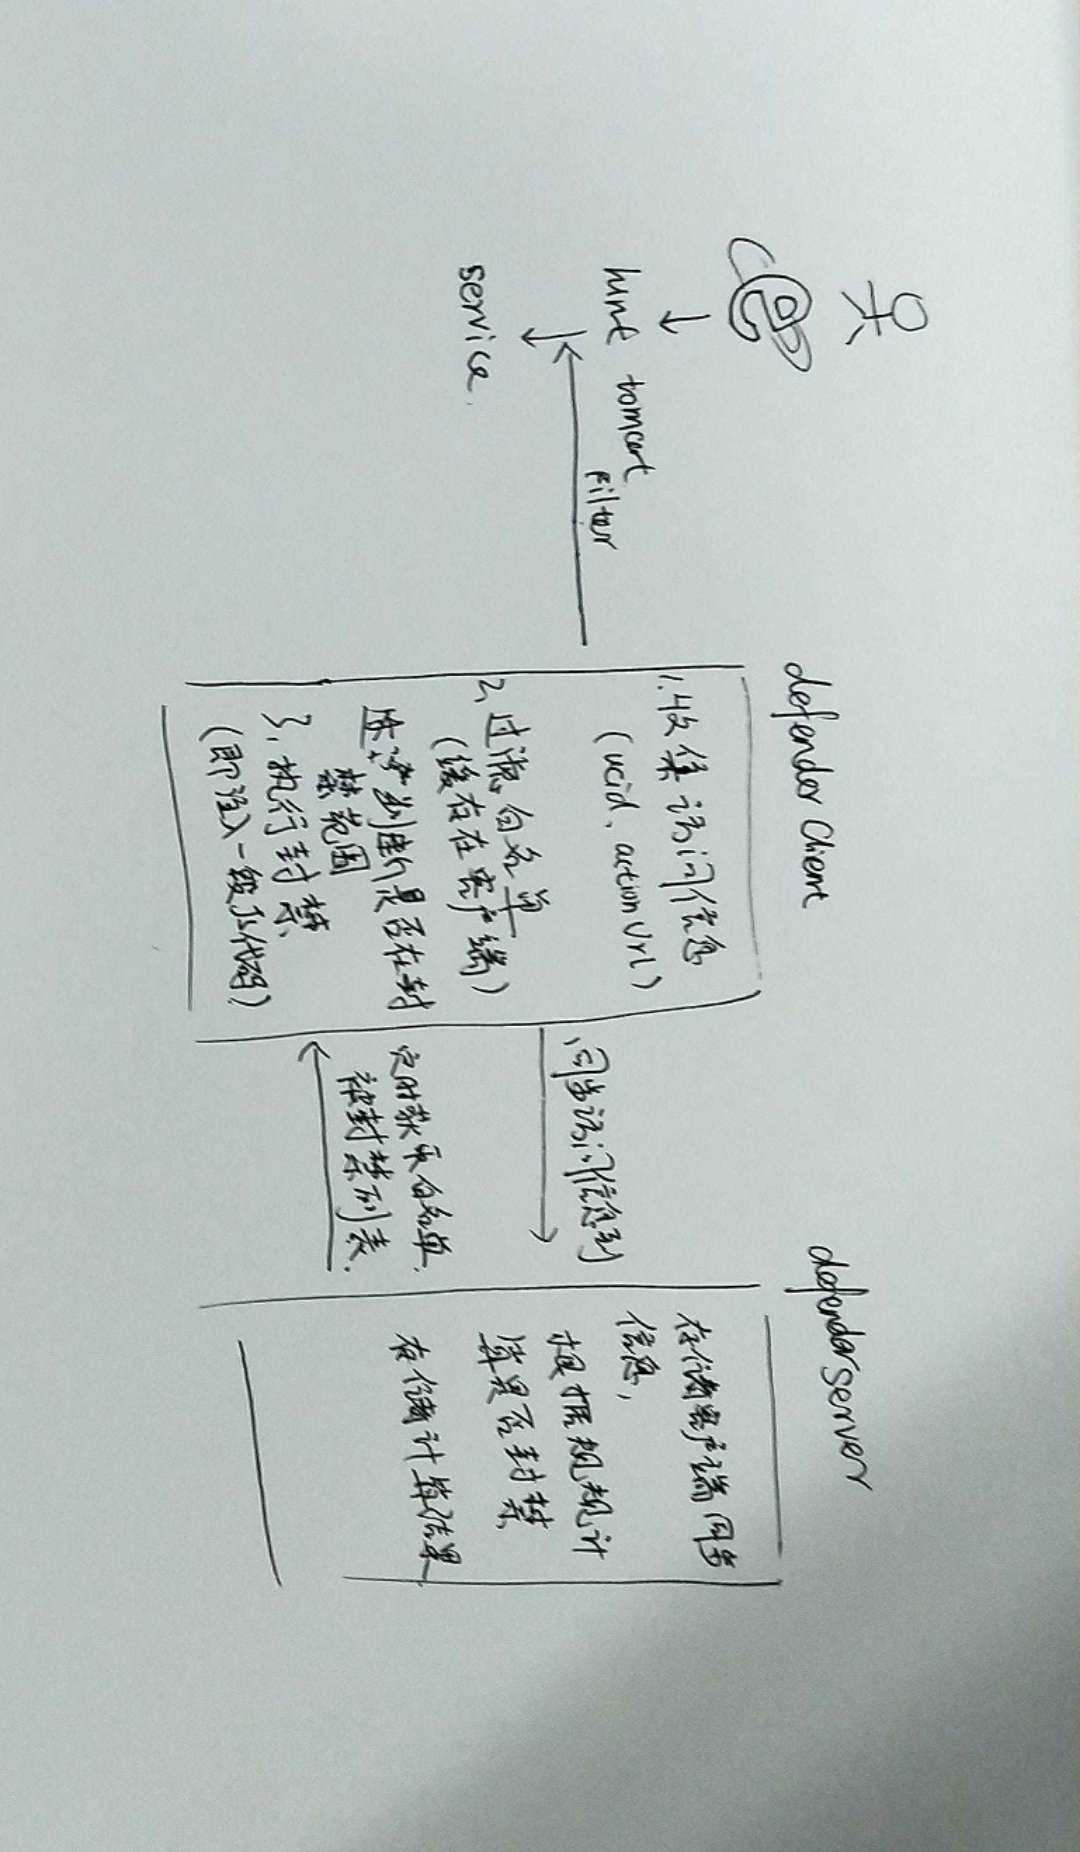 hunt tomcat
Filter
service.
defender Client
1.收集访问信息
(ucid、actionUrl)
2、过滤白名单
(缓存在客户端)
判断是否在封
禁范围
3、执行封禁
(即注入一段JS代码)
同步访问信息到
定时获取白名单
被封禁列表.
defender server
存储客户端同步
信息,
根据规规计
算是否封禁
存储计算结果